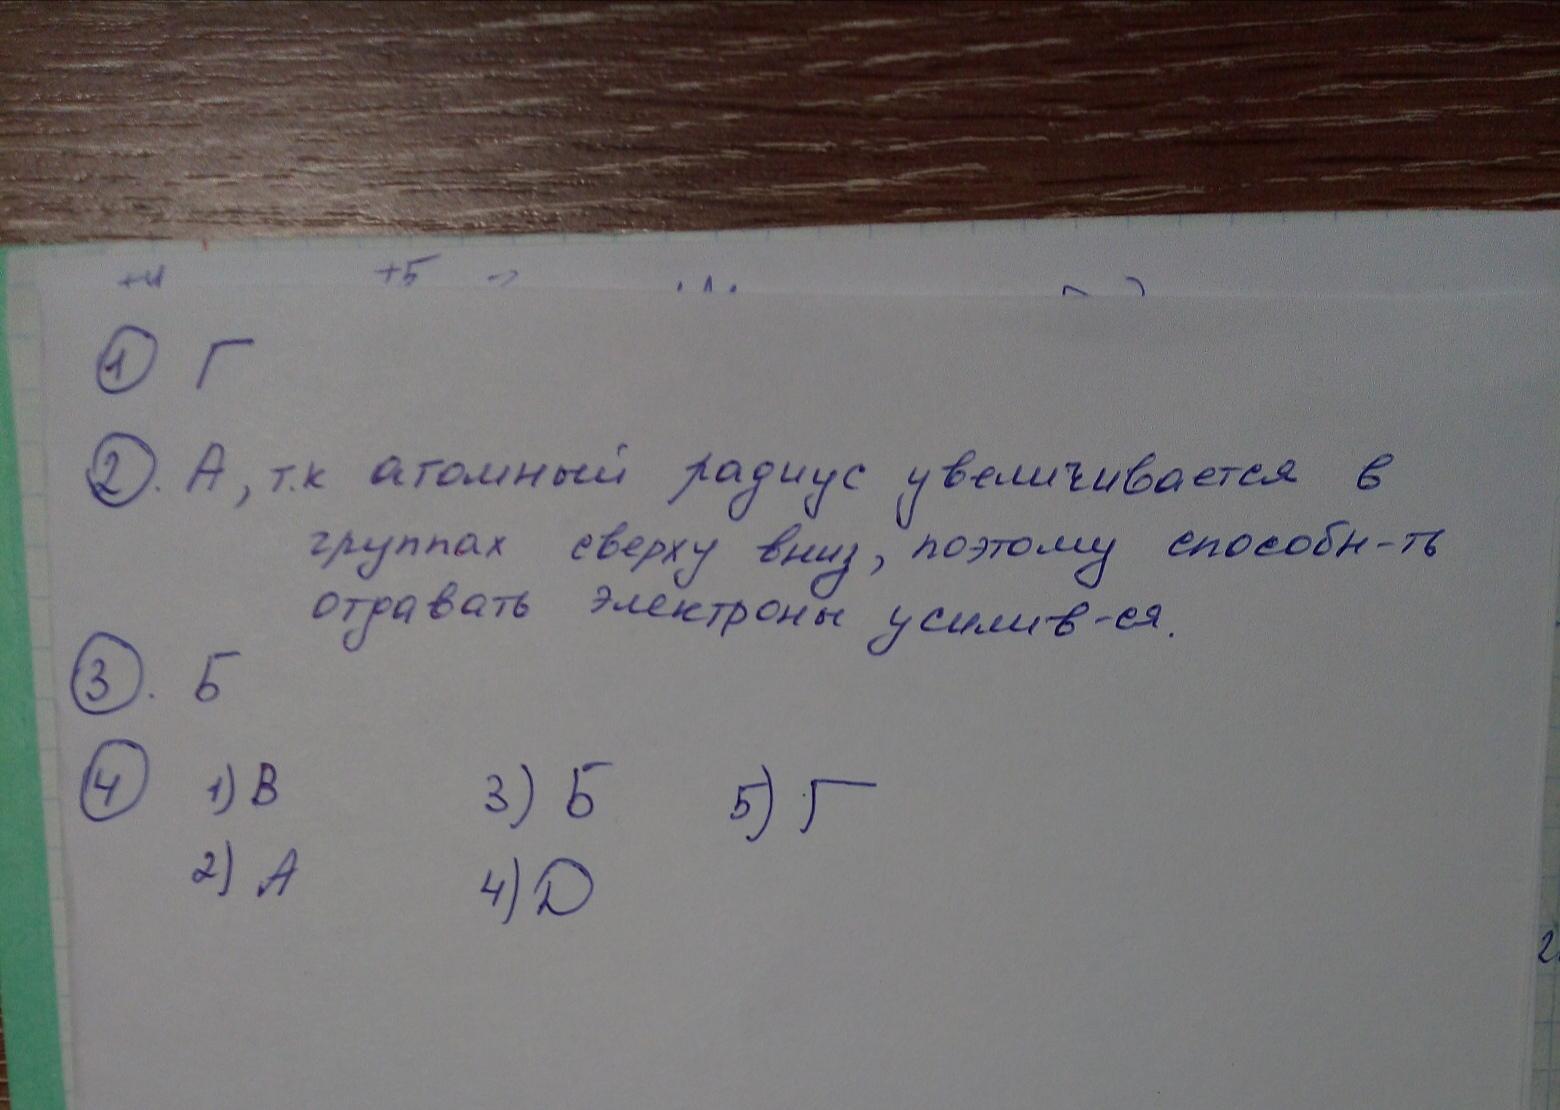 +4 +5
① Г
②. А, т.к атомный радиус увеличивается в
группах сверху вниз, поэтому способн-ть
отдавать электроны усилив-ся.
③. Б
④ 1) В 3) Б 5) Г
2) А 4) D
2